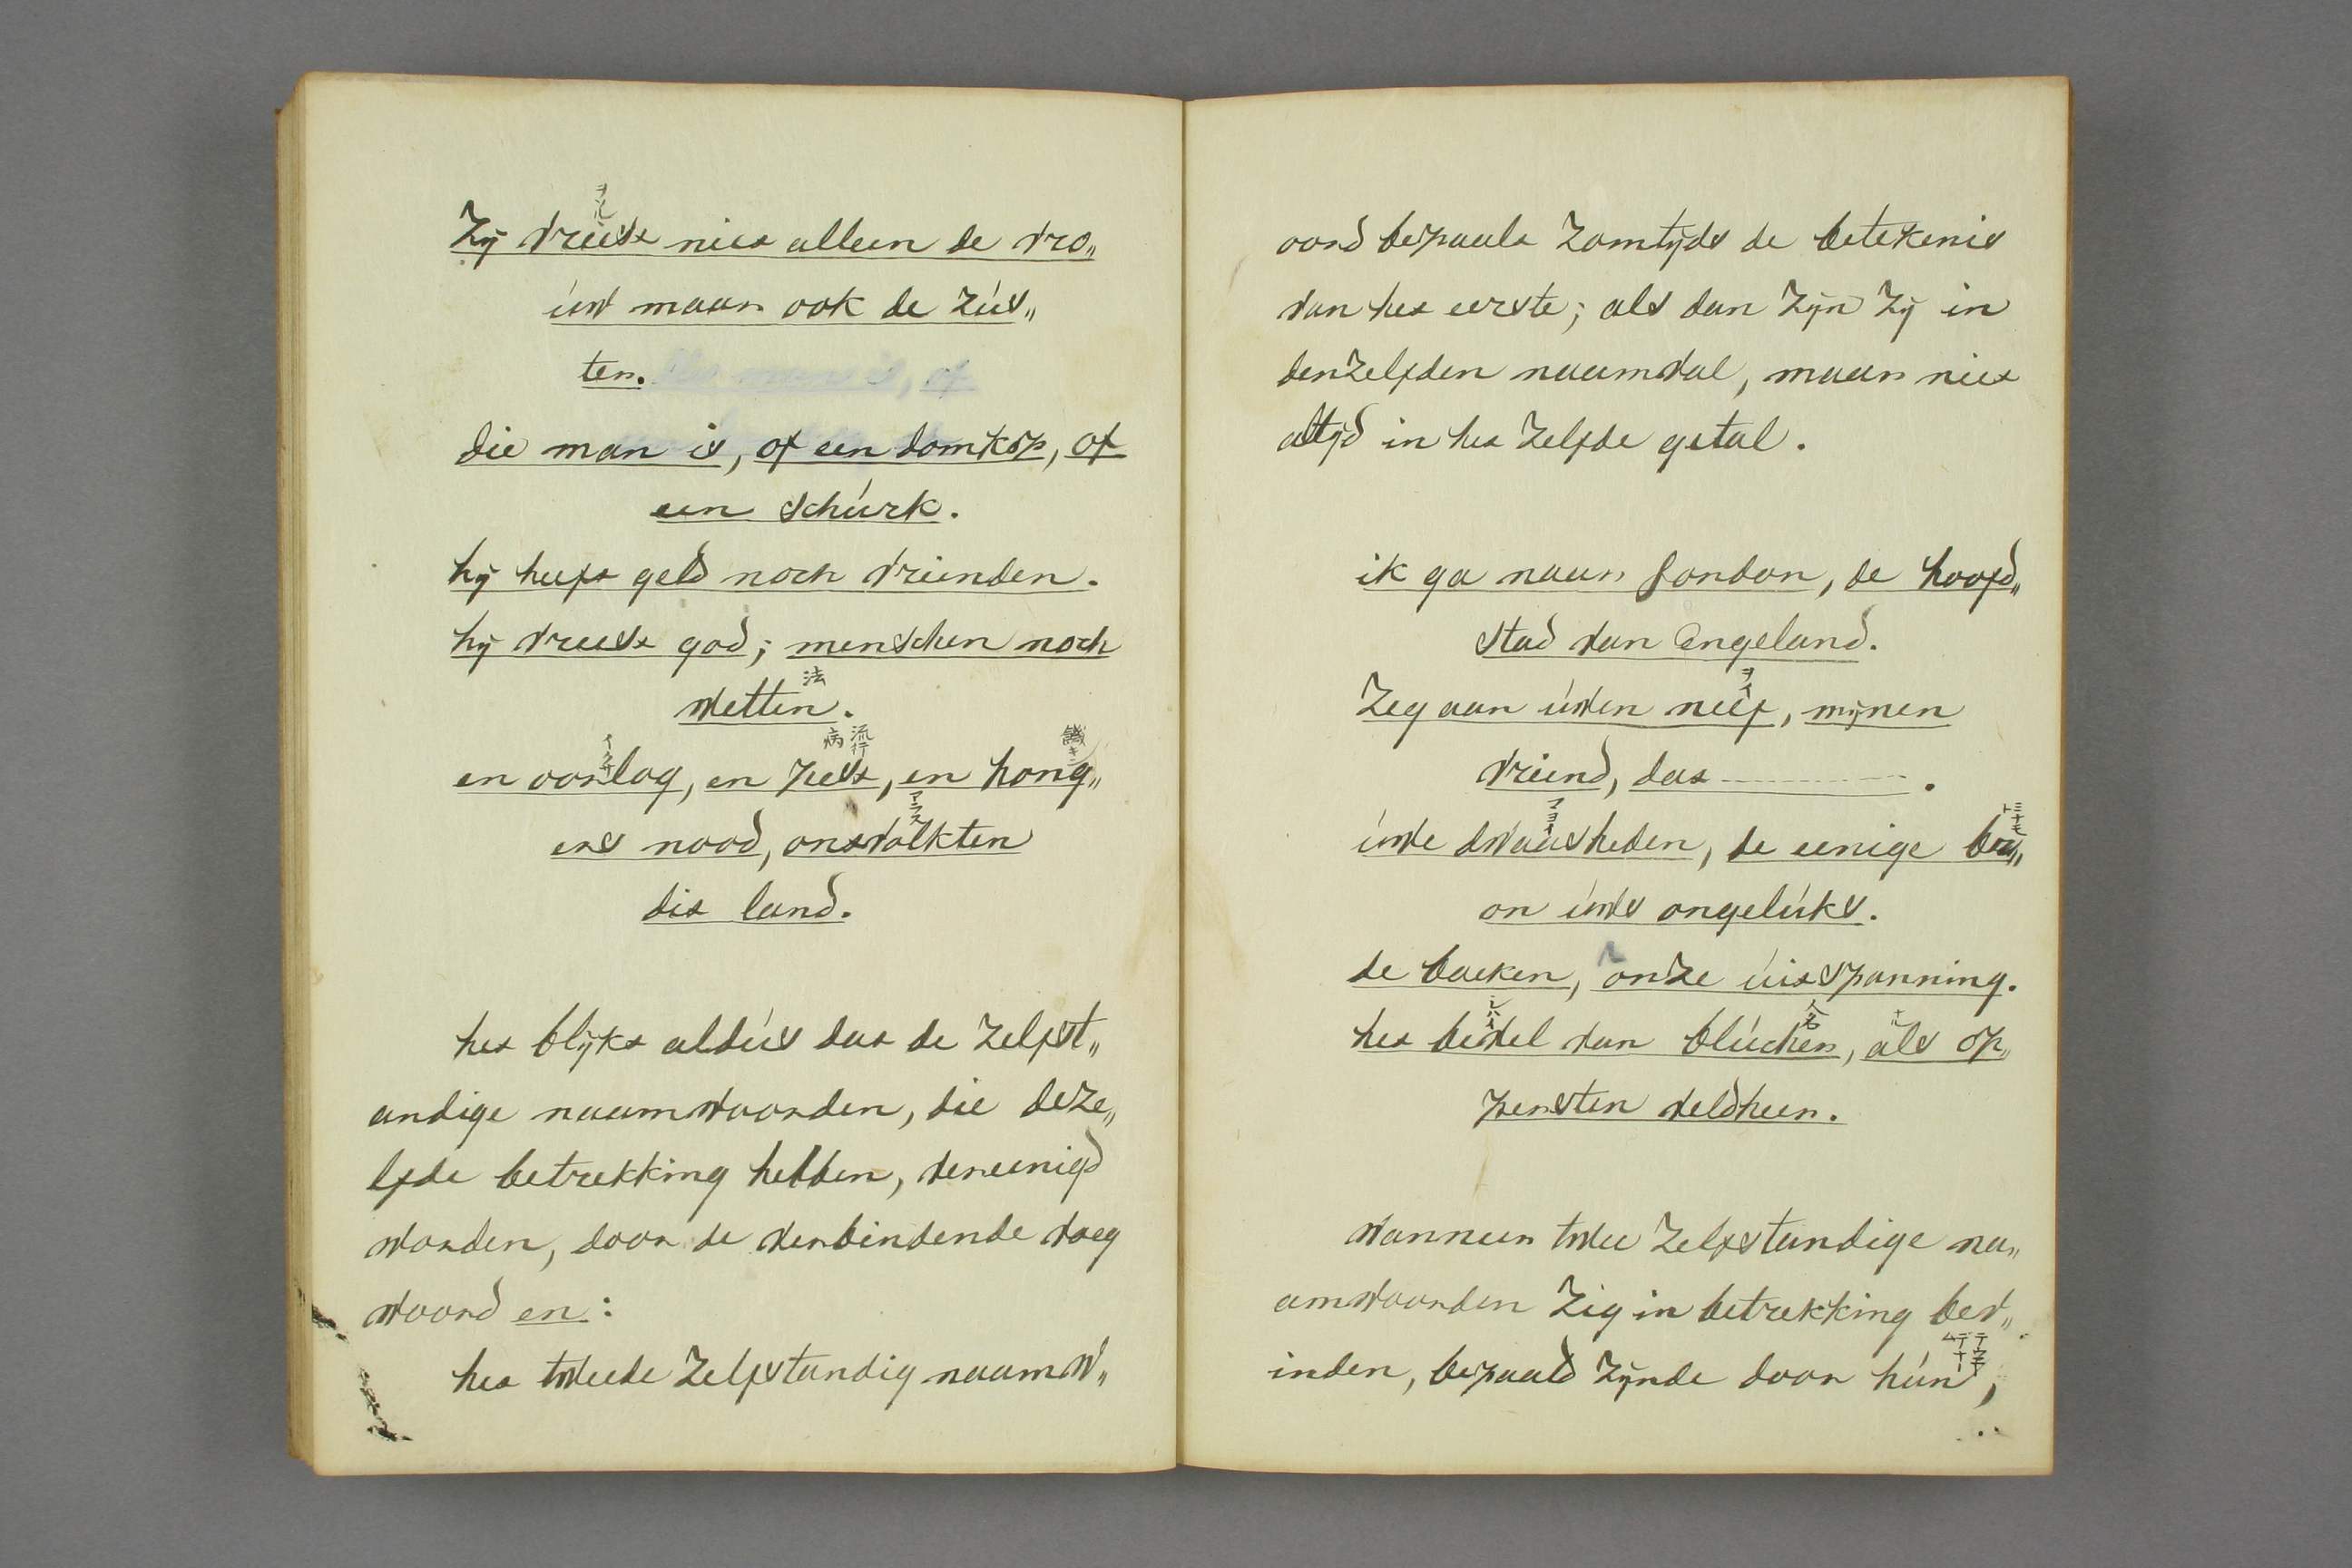 zij vreest niet alleen de vro„
ヲソル
úw maar ook de zús„
ter.
die man is, of een domkop, of
een schúrk.
hij heeft geld noch vrienden.
hij vreest god; menschen noch
法
wetten.
イクサ 流行病 饑キン
en oorlog, en pest, en hong„
アラス
ers nood, ontvolkten
dit land.
het blijkt aldús dat de zelfst„
andige naamwoorden, die deze„
lfde betrekking hebben, vereenigd
worden, door de verbindende voeg
woord en:
het tweede zelfstandig naamw„
oord bepaalt zomtijds de betekenis
van het eerste; als dan zijn zij in
denzelfden naamval, maar niet
altijd in het zelfde getal.
ik ga naar London, de hoofd„
stad van Engeland.
ヲイ
zeg aan úwen neef, mijnen
vriend, dat ——— .
マヨイ ミナモト
úwe dwaasheden, de eenige br„
on úws ongelúks.
de boeken, onze úitspanning.
シハイ 人名 ナル
het bevel van blúcher, als op„
persten veldheer.
wanneer twee zelfstandige na„
amwoorden zig in betrekking bev„
inden, bepaald zijnde door hún,